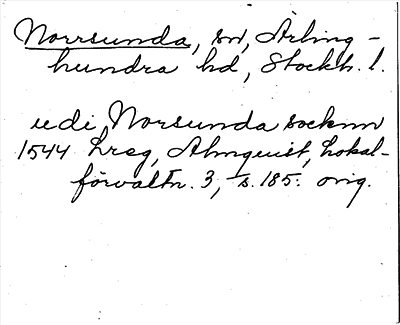 Norrsunda, sn, Ärling-
hundra hd, Stockh. l.
u di Norsunda socknn
1544 hrsg, Almquist, Lokal-
förvaltn. 3, s. 185. orig.